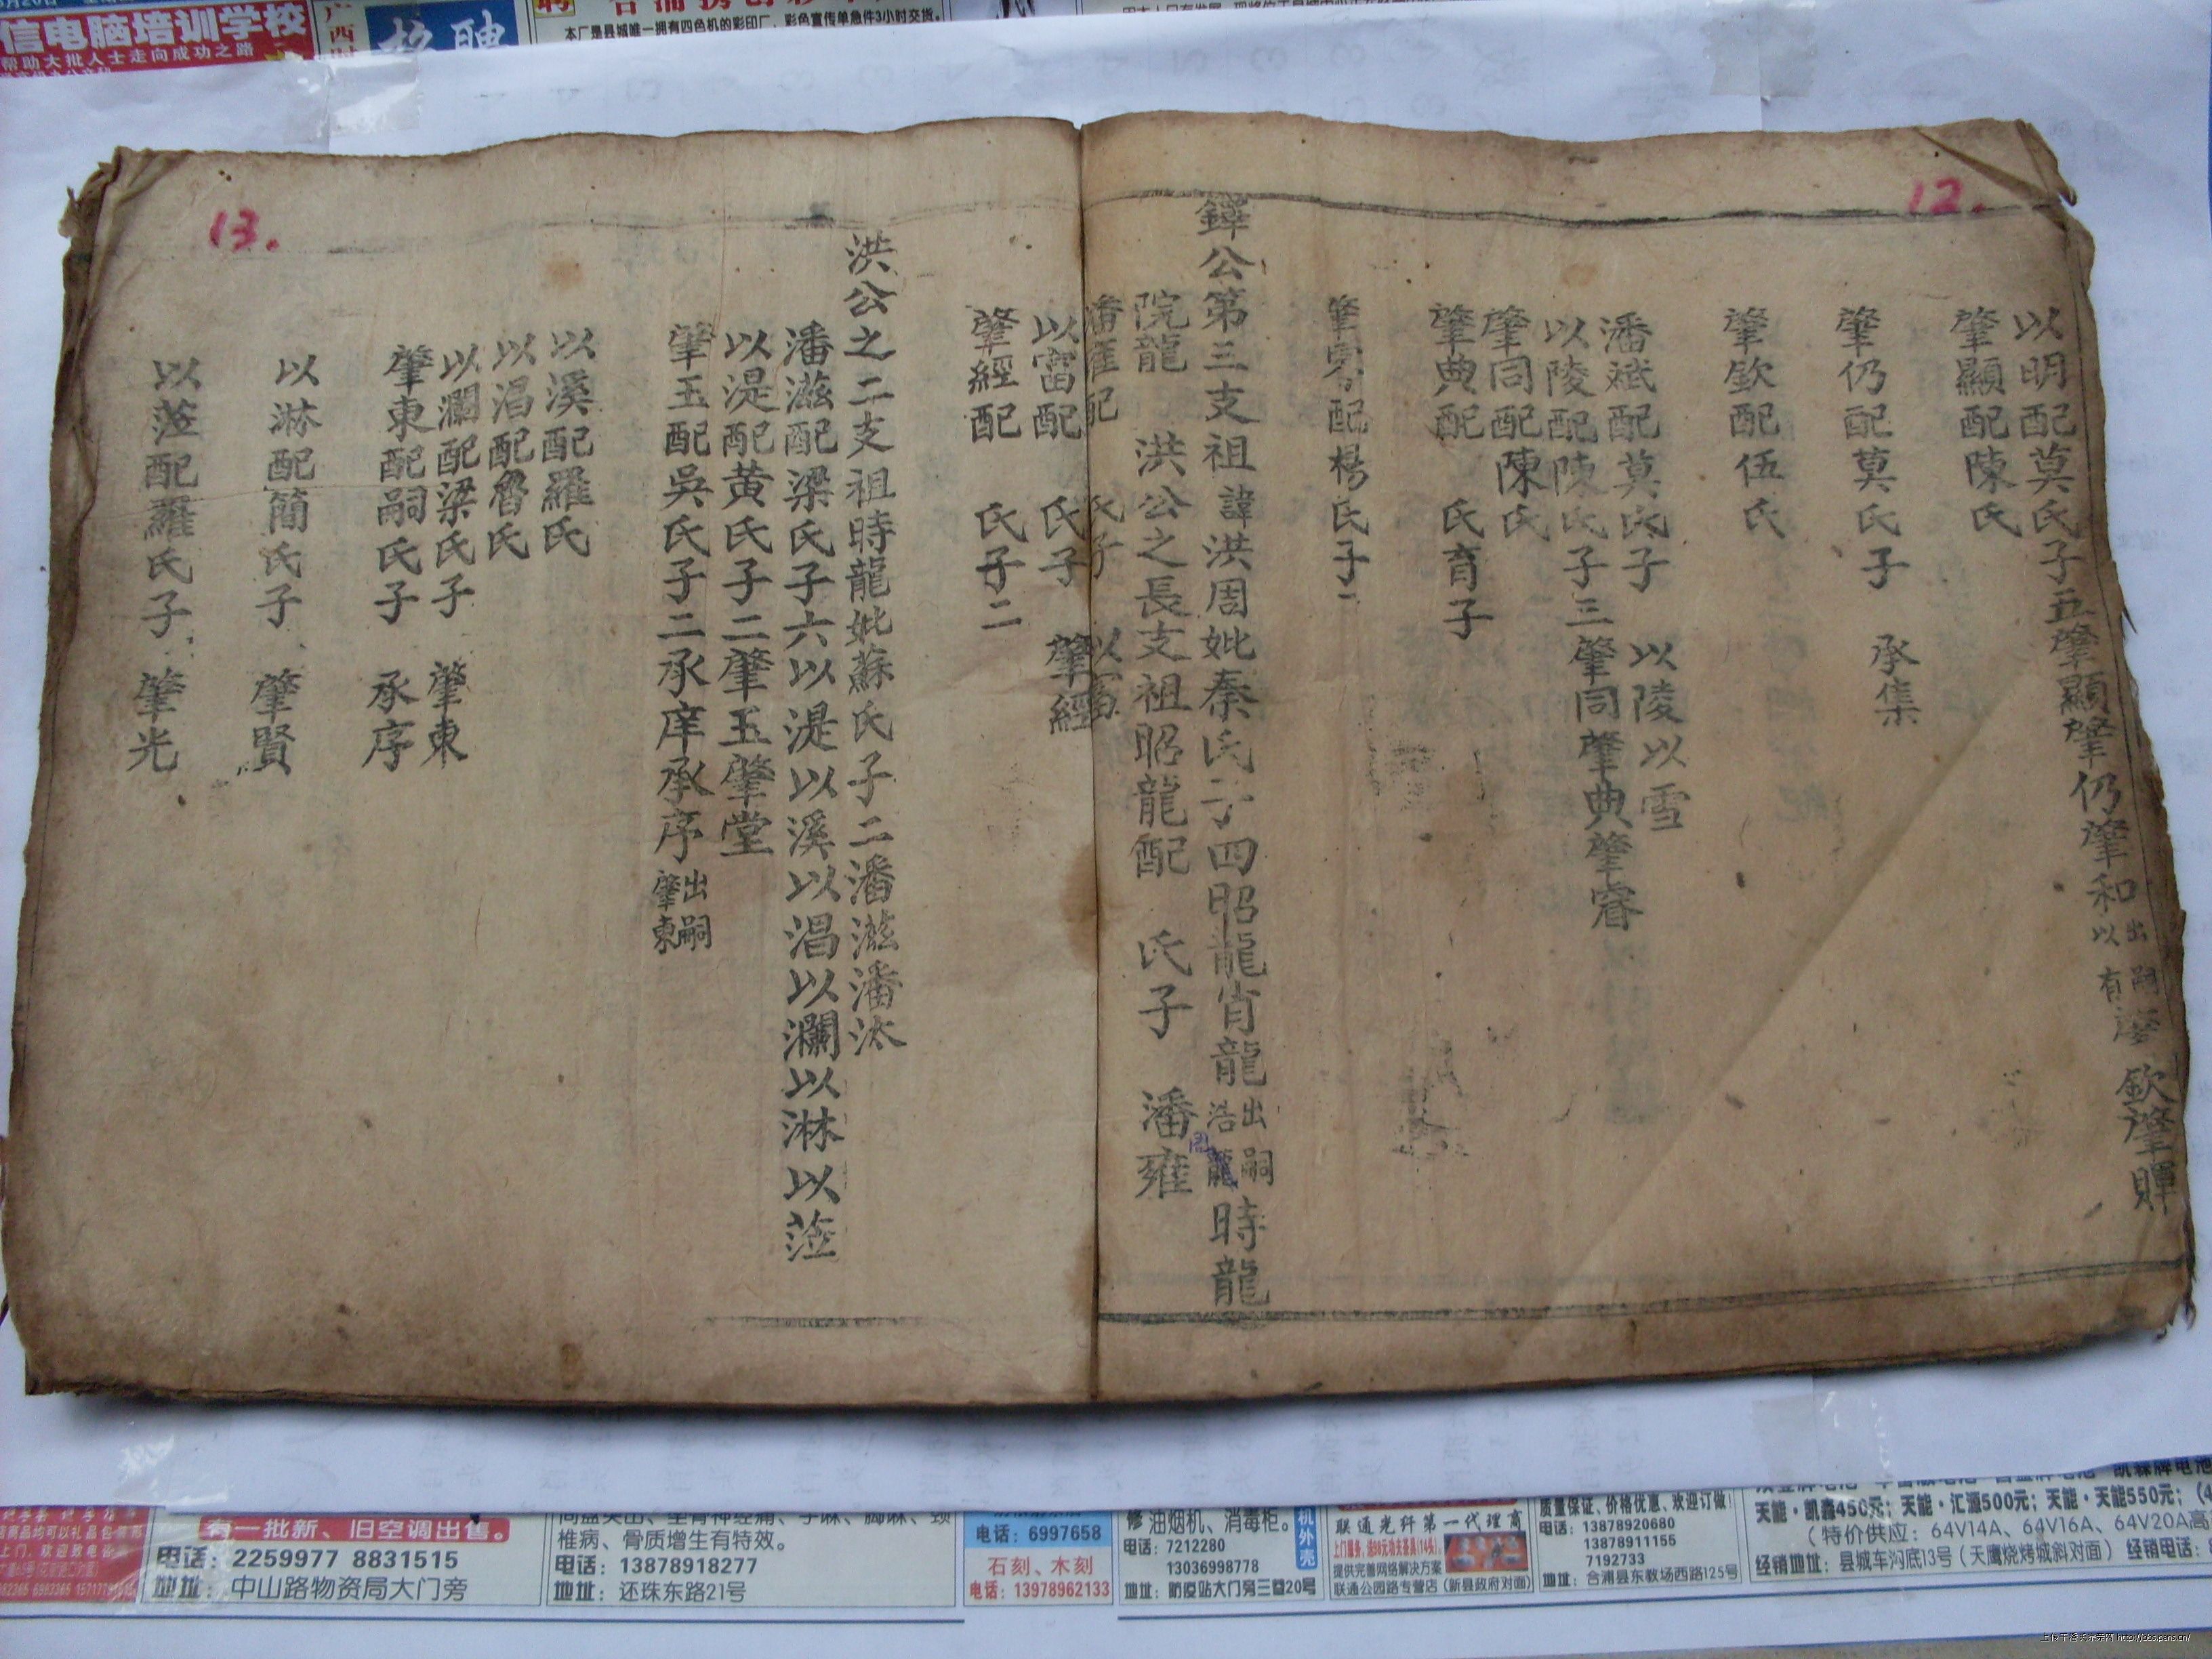 信电脑培训学校
帮助大批人士走向成功之路
本厂是县城唯一拥有四色机的彩印厂，彩色宣传单急件3小时交货。
12.
以明配莫氏子五肇顯肇仍肇和出嗣以有肇欽肇賱
肇顯配陳氏
肇仍配莫氏子 承集
肇欽配伍氏
潘斌配莫氏子 以陵以雪
以陵配陳氏子三肇同肇典肇睿
肇同配陳氏
肇典配 氏育子
肇 配楊氏子
鐸公第三支祖諱洪周妣秦氏子四昭龍肖龍出嗣浩 龍時龍
院龍 洪公之長支祖昭龍配 氏子 潘雍
潘雍配 氏子 以富
以富配 氏子 肇經
肇經配 氏子二
13.
洪公之二支祖時龍妣蘇氏子二潘滋潘汰
潘滋配梁氏子六以湜以溪以淐以瀾以淋以蒞
以湜配黄氏子二肇玉肇堂
肇玉配吳氏子二承庠承序出嗣肇東
以溪配羅氏
以淐配魯氏
以瀾配梁氏子 肇東
肇東配嗣氏子 承序
以淋配簡氏子 肇賢
以蒞配羅氏子 肇光
有一批新、旧空调出售。
电话：2259977 8831515
地址：中山路物资局大门旁
椎病、骨质增生有特效。
电话：13878918277
地址：还珠东路21号
电话：6997658
石刻、木刻
电话：13978962133
修油烟机、消毒柜。
电话：7212280
13036998778
地址：防疫站大门旁三巷20号
机外壳
联通光纤第一代理商
提供完善网络解决方案
联通公园路专营店（新县政府对面）
质量保证、价格优惠、欢迎订做！
电话：13878920680
13878911155
7192733
地址：合浦县东教场西路125号
天能·凯鑫450元；天能·汇源500元；天能·天能550元；
（特价供应：64V14A、64V16A、64V20A高
经销地址：县城车沟底13号（天鹰烧烤城斜对面） 经销电话：